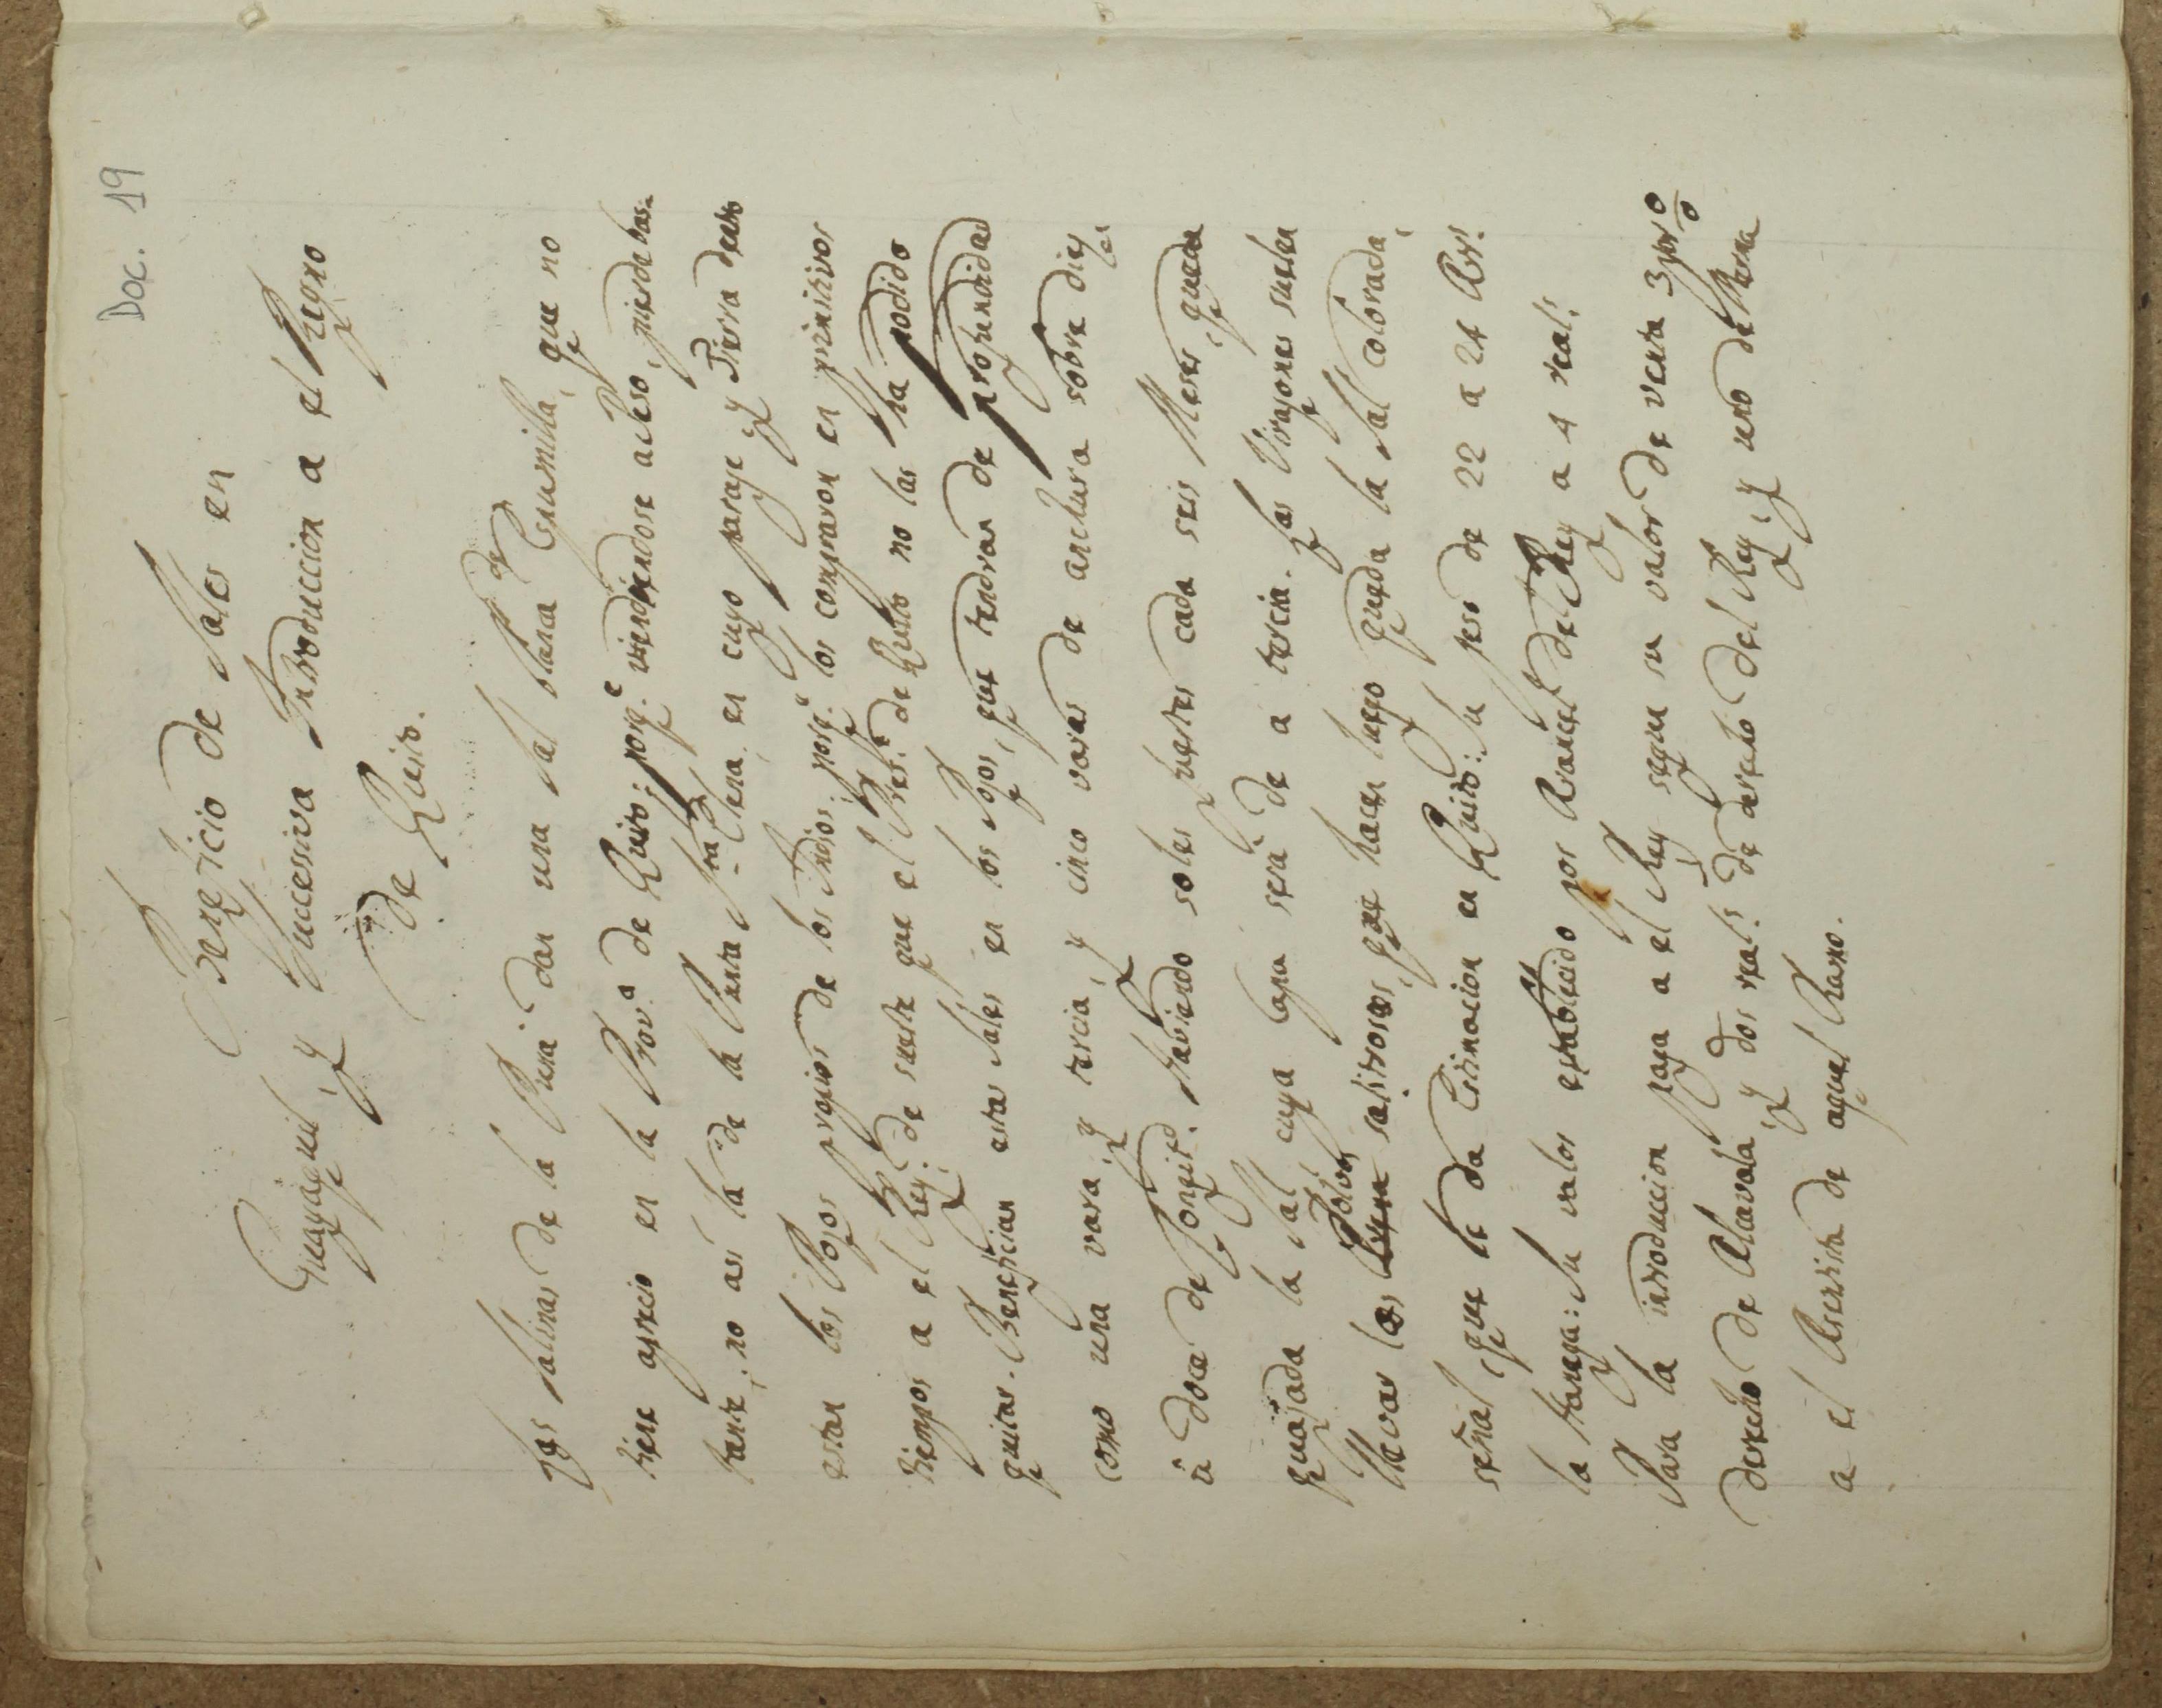 Doc. 19
Beneficio de Sales en
Guayàquil, y succesiva Introduccion a el Regno
de Quito.
Las salinas de la Puna dan una sal blanca de Espumilla, que no
tiene aprecio en la Prov.a de Quito; porq.e vendiendose a peso, pierde bas-
tante, no asi la de la Punta S.ta Elena, en cuyo parage y Tierra dentro
estan los Pozos propios de los Indios, porq.e los compraron en primitivos
tiempos a el Rey: de suerte que el Pres.te de Quito no las ha podido
quitar. Benefician estas sales en los Pozos, que tendran de profundidad
como una vara, y tercia, y cinco varas de anchura sobre diez
ù doce de longit.d. Haviendo soles fuertes cada seis Meses, queda
quajada la sal, cuya capa serà de a tercia. Las Virazones suelen
llevar los Polvos salitrosos, que hacen luego queda la sal colorada,
señal, que le da Estimacion en Quito: su peso de 22 a 24 Rs.
la fanega: Su valor establecido por Arancel del Rey a 4 real.s
Para la introduccion paga a el Rey segun su valor de venta 3 por %
derecho de Alcavala, y dos real.s de derecho del Rey, y uno de Merma
a el Asentista de aquel Ramo.